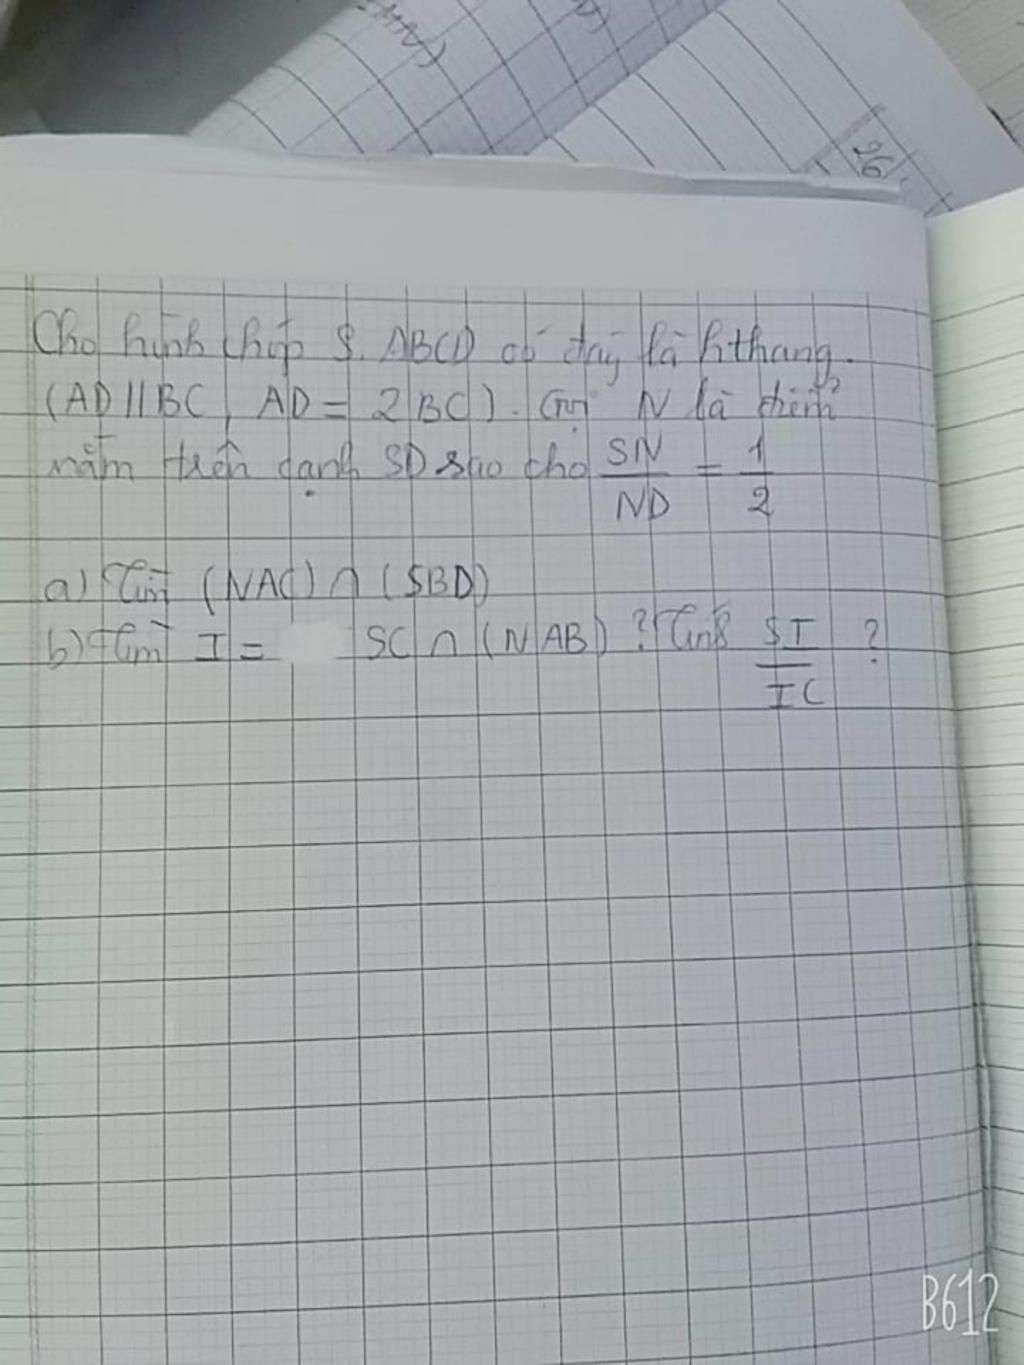 26
Cho hình chóp S.ABCD có đáy là hthang.
(AD//BC, AD = 2BC). Gọi N là điểm
nằm trên cạnh SD sao cho SN/ND = 1/2
a) Tìm (NAC) ∩ (SBD)
b) Tìm I = SC ∩ (NAB)? Tính SI/IC ?
B612